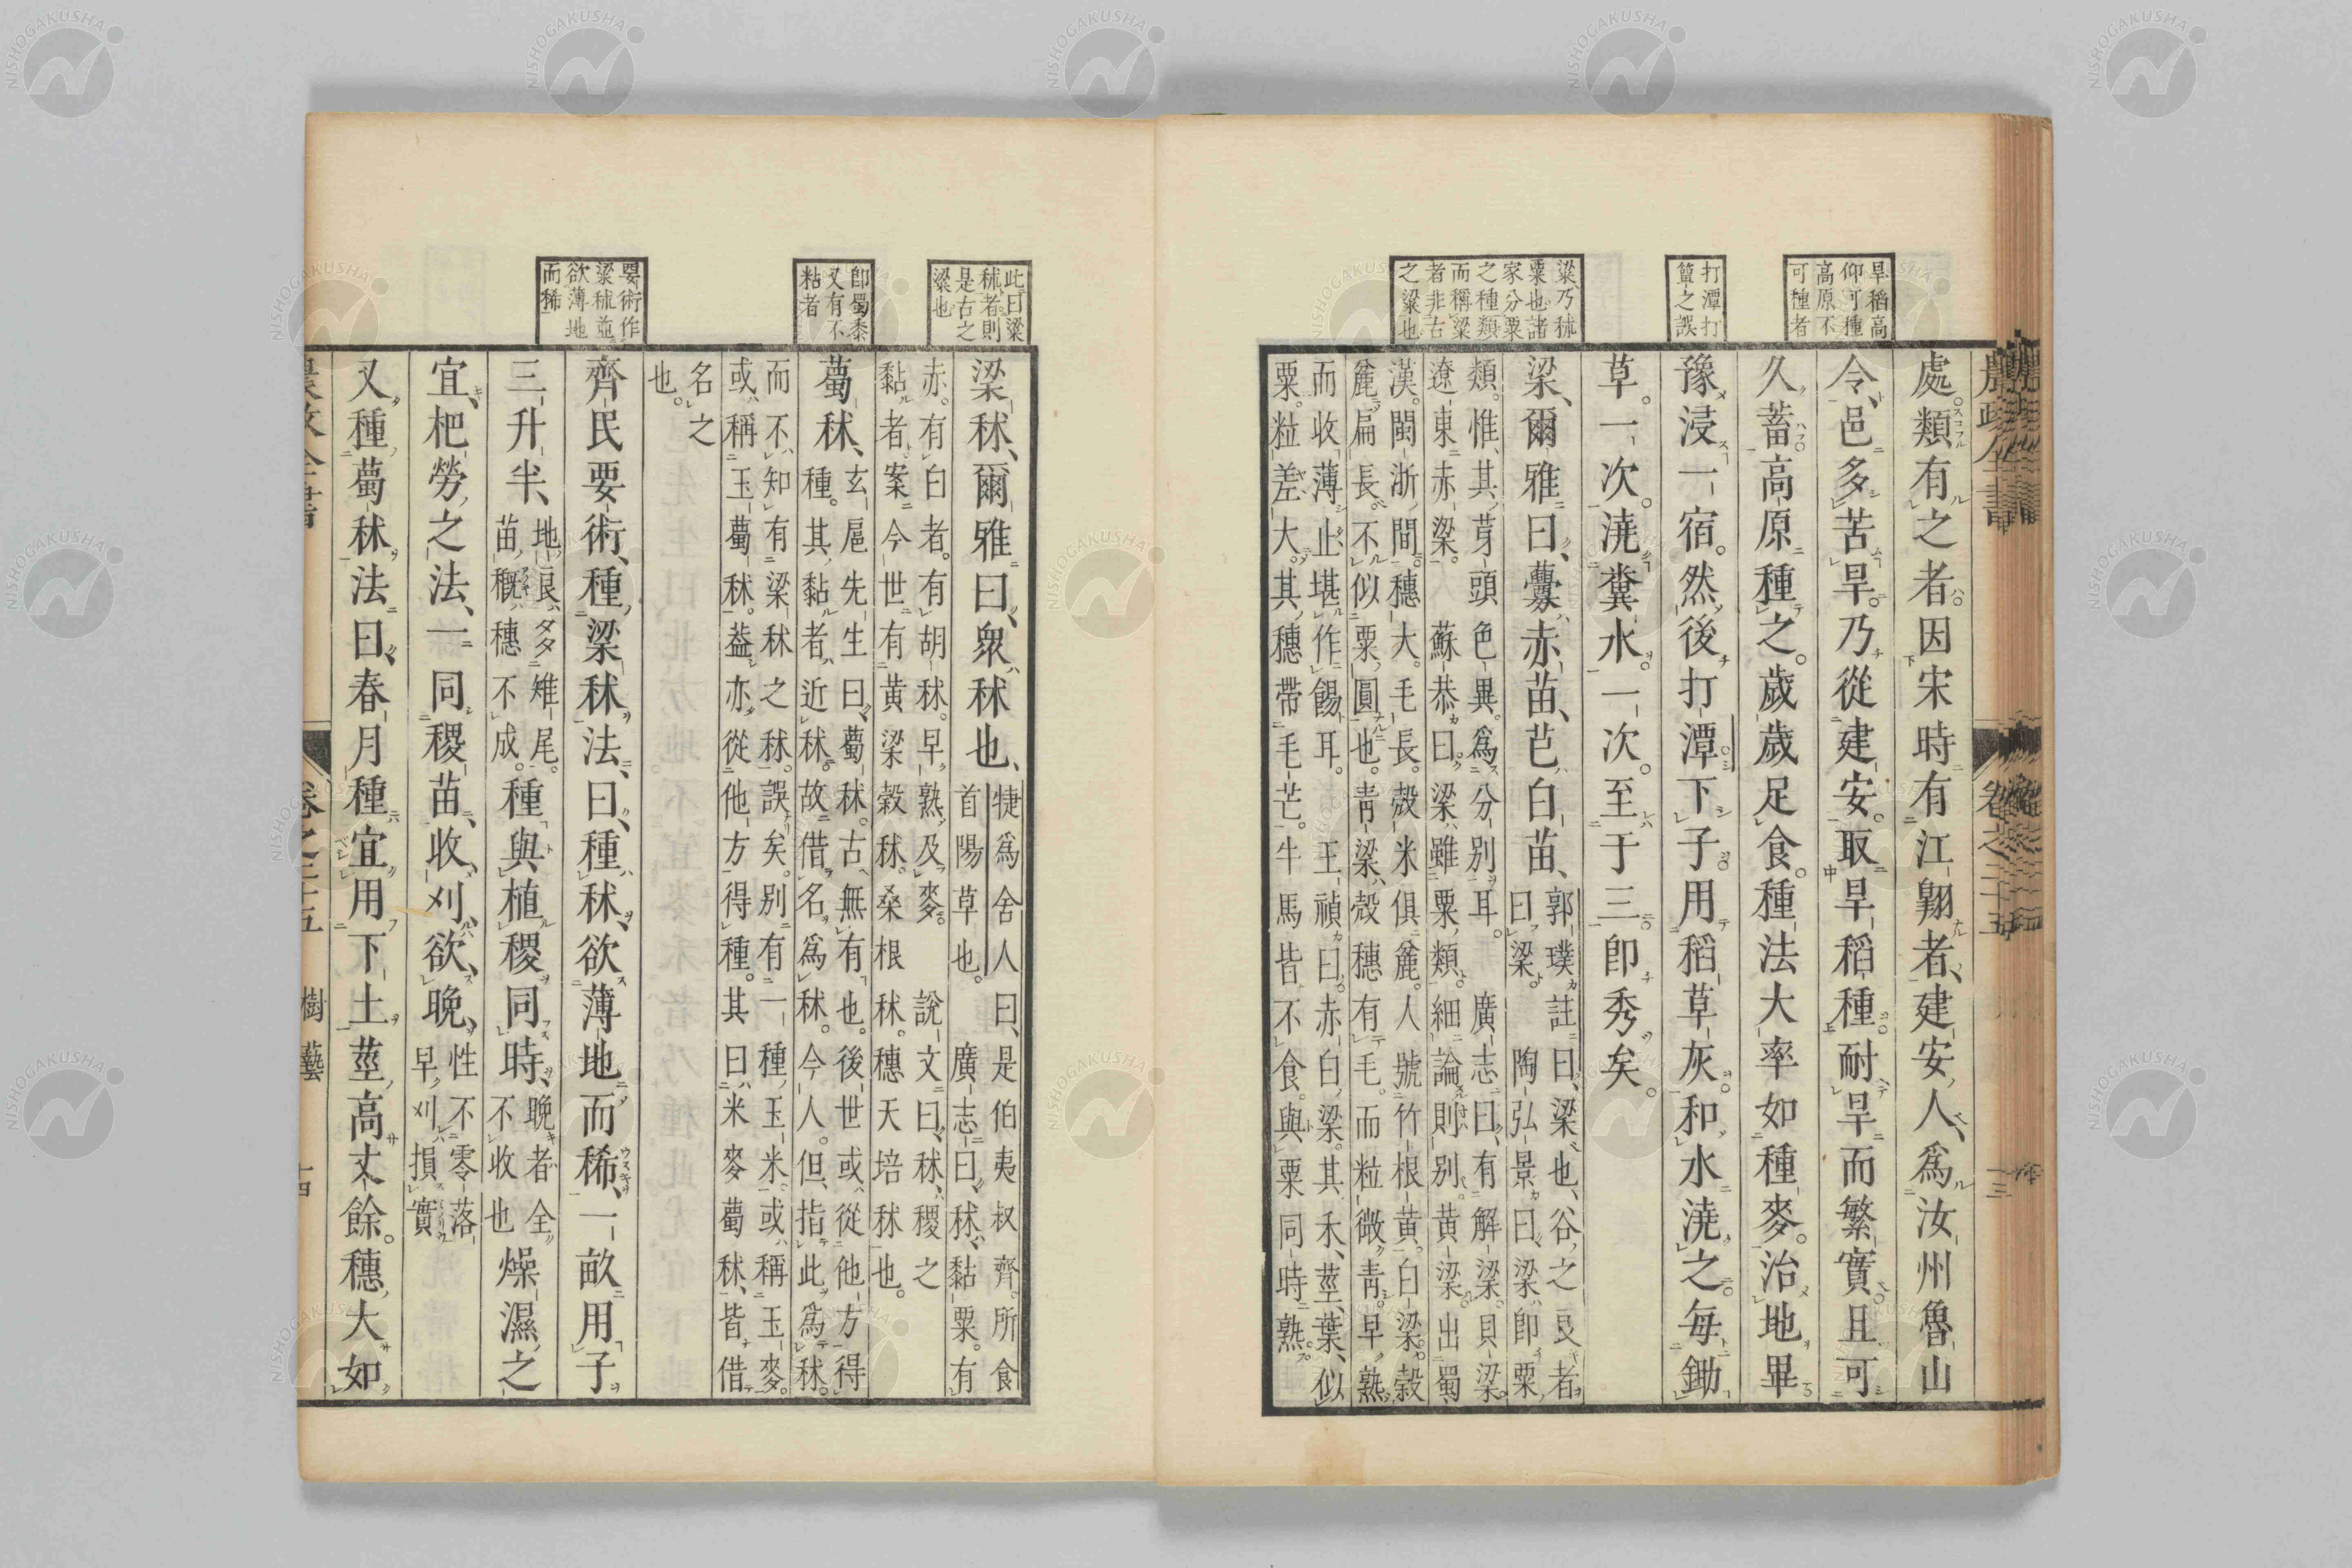 旱稻高
仰可種
高原不
可種者
打潭打
簞之誤
粱乃秫
粟也諸
家分粟
之種類
而稱粱
者非古
之粱也
處類有之者因宋時有江翺者建安人爲汝州魯山
令邑多苦旱乃從建安取旱稻種耐旱而繁實且可
久蓄高原種之歲歲足食種法大率如種麥治地畢
豫浸一宿然後打潭下子用稻草灰和水澆之每鋤
草一次澆糞水一次至于三卽秀矣
梁爾雅曰虋赤苗芑白苗郭璞註曰梁也谷之良者
曰梁陶弘景曰梁卽粟
類惟其芽頭色異爲分別耳廣志曰有解梁貝梁
遼東赤梁蘇恭曰梁雖粟類細論則別黃梁出蜀
漢閩浙間穗大毛長殼米俱麄人號竹根黃白梁穀
麄扁長不似粟圓也靑梁殼穗有毛而粒微靑早熟
而收薄止堪作餳耳王禎曰赤白梁其禾莖葉似
粟粒差大其穗帶毛芒牛馬皆不食與粟同時熟
此曰粱
秫者則
是古之
粱也
卽蜀黍
又有不
粘者
要術作
粱秫並
欲薄地
而稀
梁秫爾雅曰衆秫也犍爲舍人曰是伯夷叔齊所食
首陽草也廣志曰秫黏粟有
赤有白者有胡秫早熟及麥說文曰秫稷之
黏者案今世有黃梁穀秫桑根秫穗天培秫也
薥秫玄扈先生曰薥秫古無有也後世或從他方得
種其黏者近秫故借名爲秫今人但指此爲秫
而不知有梁秫之秫誤矣別有一種玉米或稱玉麥
或稱玉薥秫葢亦從他方得種其曰米麥薥秫皆借
名之
也
齊民要術種梁秫法曰種秫欲薄地而稀一畝用子
三升半地良多雉尾
苗穊穗不成種與植稷同時晚者全
不收也燥濕之
宜杷勞之法一同稷苗收刈欲晚性不零落
早刈損實
又種薥秫法曰春月種宜用下土莖高丈餘穗大如
樹藝